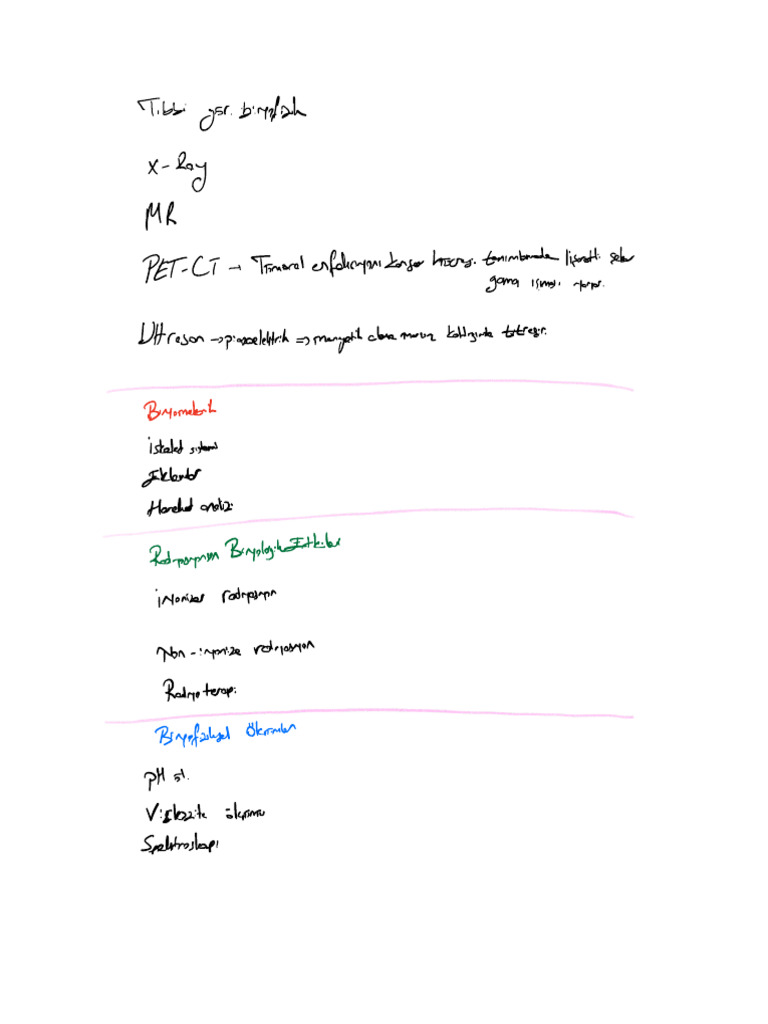 Tıbbi gör. biyofizik
X-Ray
MR
PET-CT → Tümoral enfeksiyon kanser hücresi tanımlamada işaretli şeker
gama ışıması yapar.
Ultrason → piezoelektrik => manyetik alana maruz kaldığında titreşir.
Biyomekanik
İskelet sistemi
Eklemler
Hareket analizi
Radyasyonun Biyolojik Etkileri
İyonize radyasyon
Non-iyonize radyasyon
Radyoterapi
Biyofiziksel Ölçümler
pH
Viskozite ölçümü
Spektroskopi